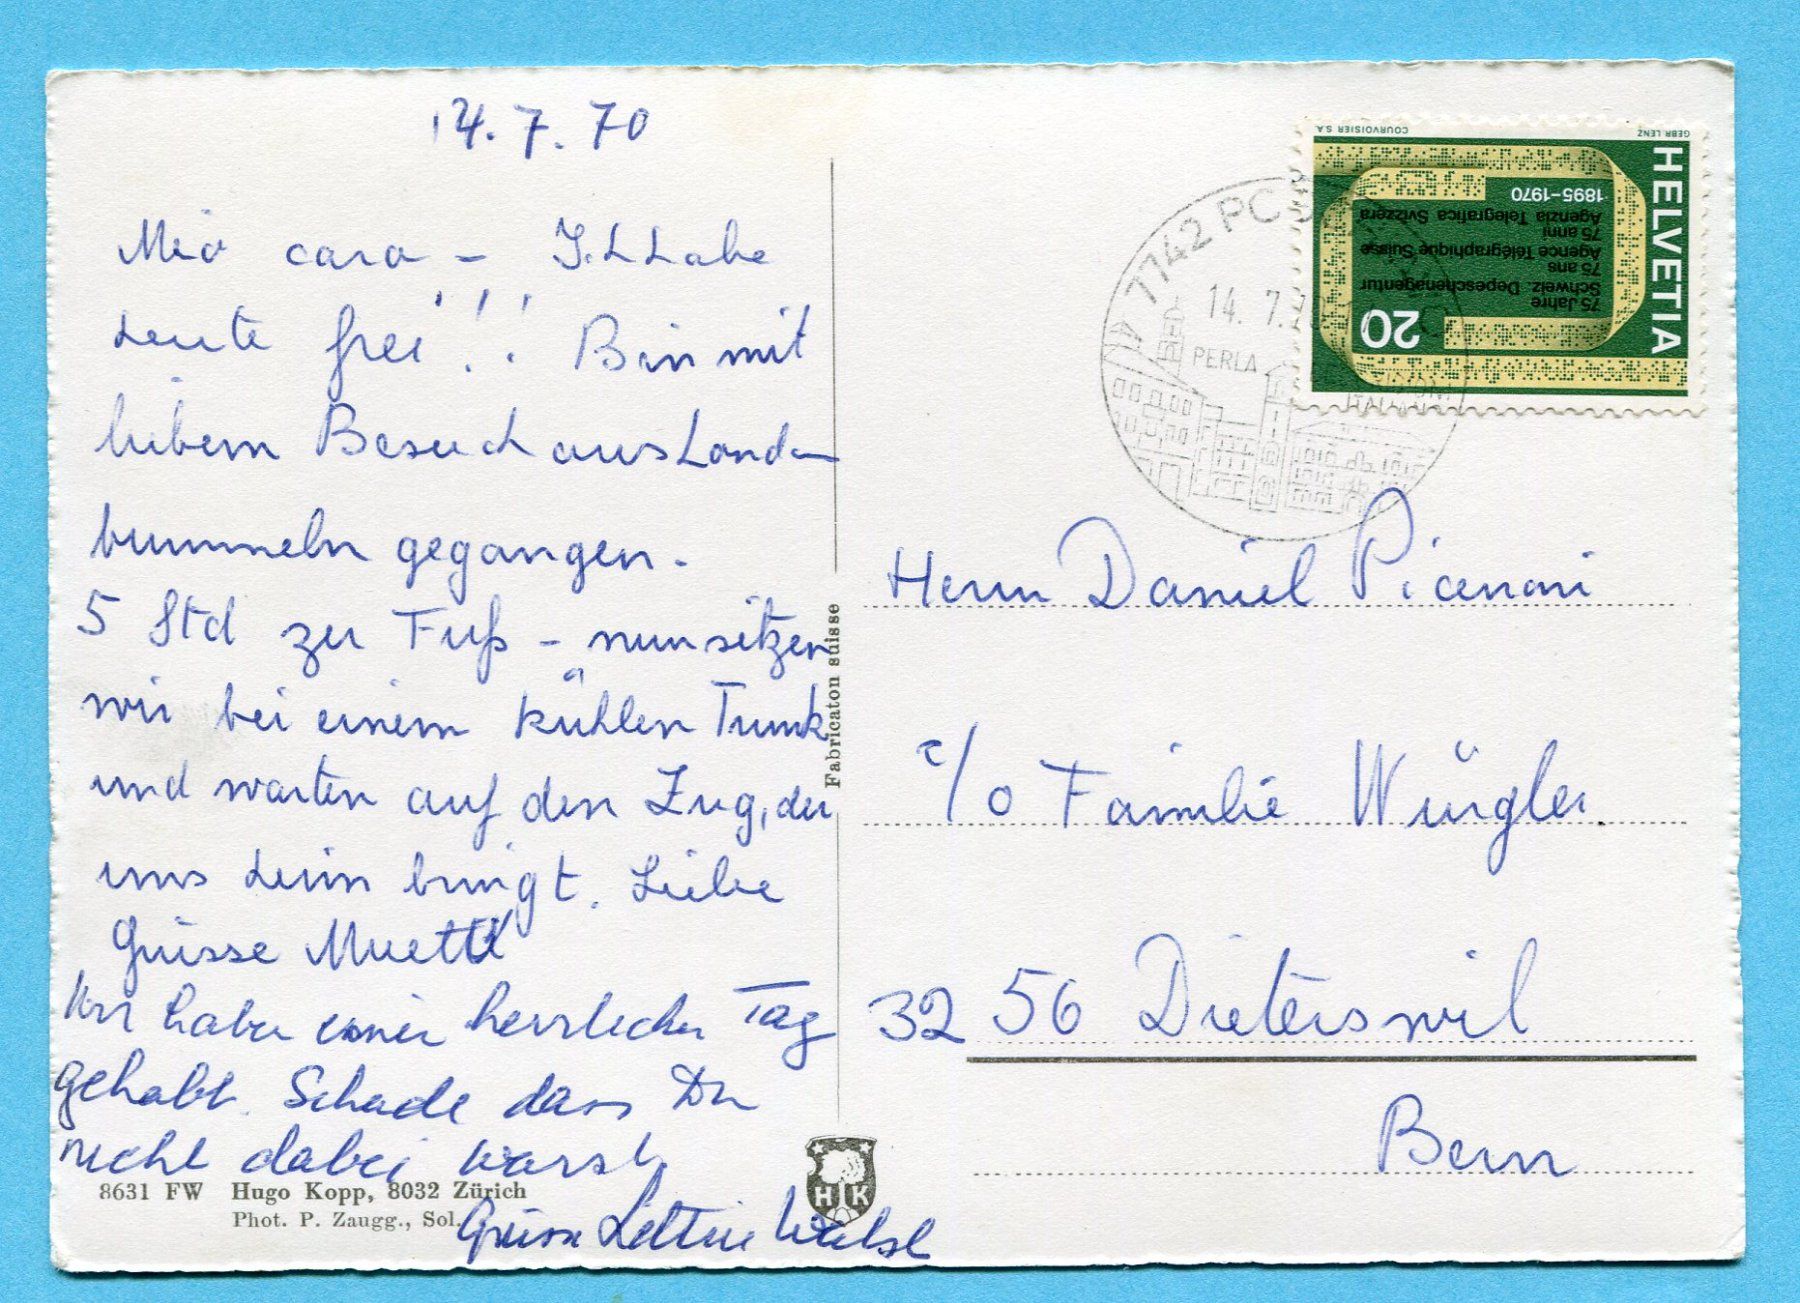 14.7.70
Mio caro - I. L habe
heute frei!!! Bin mit
liebem Besuch aus London
bummeln gegangen.
5 Std zu Fuß - nun sitzen
wir bei einem kühlen Trunk
und warten auf den Zug, der
uns heim bringt. Liebe
Grüsse Muetti
Wir haben einen herrlichen Tag
gehabt. Schade dass Du
nicht dabei warst
Grüsse
8631 FW Hugo Kopp, 8032 Zürich
Phot. P. Zaugg., Sol.
Fabricaton suisse
H K
HELVETIA
20
75 Jahre
Schweiz. Depeschenagentur
75 ans
Agence Télégraphique Suisse
75 anni
Agenzia Telegrafica Svizzera
1895-1970
COURVOISIER S.A.
GEBR LENZ
7742
14. 7. 70
PERLA
Herrn Daniel Picenoni
c/o Familie Würgler
3256 Dieterswil
Bern